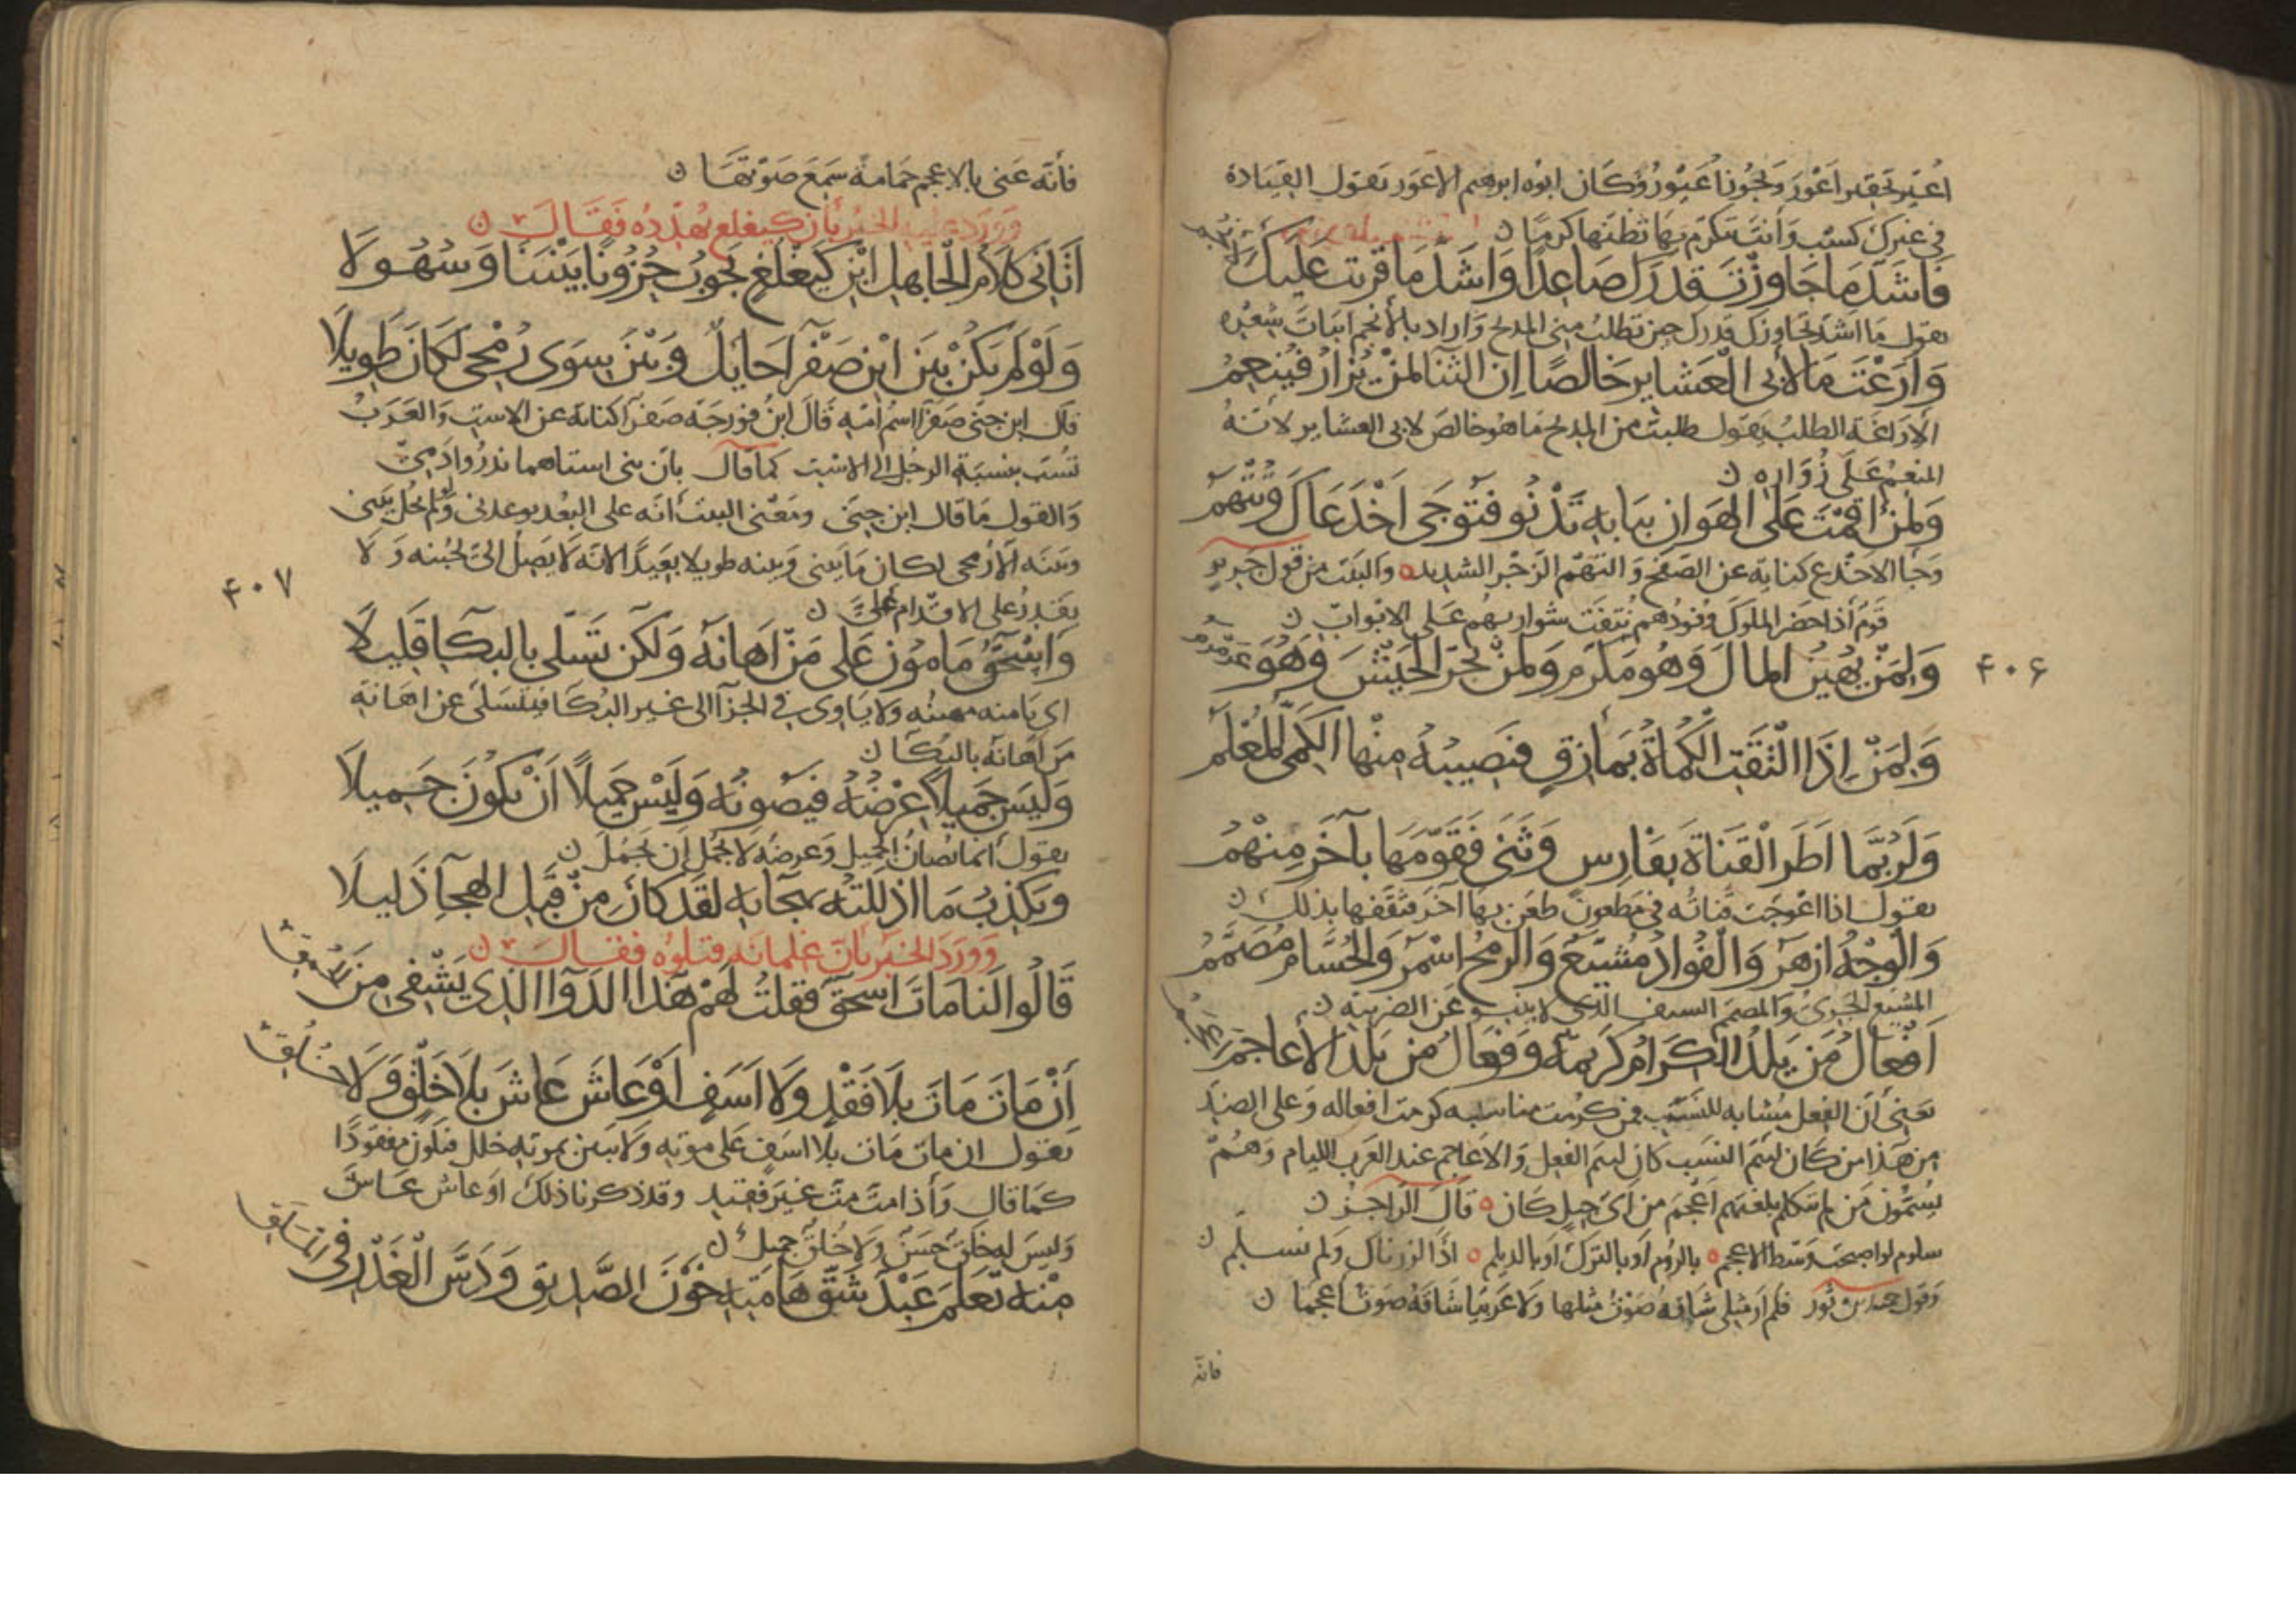 اعير تحقير اعور ويجوز عيور وكان ابوه ابرهيم الاعور يقول القيادة
في غيرك كسب وأنت تتكرم بها تظنها كرما ن
فَاَشَدَّ مَا جَاوَزْتَ قدرك صَاعِدًا وَاَشَدَّ مَا قربت عَلَيكَ الأنجم
يقول ما اشد تجاوزك قدرك حين تطلب مني المدح واراد بالأنجم ابيات شعره
وَاَرَغْتَ مَا لأبى الْعَشايرِ خَالصًا اِن الثنا لمنْ يُزارُ فيُنعِمُ
الاراغة الطلب يقول طلبت من المدح ما هو خالص لابى العشاير لانه
المنعم على زواره ن
وَلمَنْ اقمْتَ عَلَى الهَوانِ بِبابِه تَدْنُو فتُوجَى اَخْدَعَاكَ وتُنْهَمُ
وجا الاخدع كناية عن الصفع والنهم الزجر الشديد ه والبيت من قول جرير
قوم أذا حضر الملوك وفودهم نتفت شواربهم على الابواب ن
٤٠٦
وَلِمَنْ يُهِينُ المالَ وَهُو مَكرَم وَلمنْ يَجُرّ الجَيْشَ وَهُوَ عَرَمْرَمُ
وَلِمَنْ إِذَا الْتَقَتِ الكُمَاةُ بمَازقٍ فنَصِيبُهُ مِنْها الكَمِىُّ المُعْلَمُ
وَلَرُبَّمَا اَطَرَ الْقَنَاةَ بفَارِسٍ وَثَنَى فَقَوَّمَهَا بآخَرَ مِنْهُمُ
يقول اذا اعوجت قناته في مطعون طعن بها آخر فثقفها بذلك ن
وَالْوَجْهُ ازهَرُ وَالْفُوادُ مُشيَّعٌ وَالرمحُ اسْمَرُ وَالحُسَامُ مُصَمِّمُ
المشيع الجرى والمصمم السيف الذي لا ينبو عن الضريبة ن
اَفْعَالُ مَن يَلدُ الكِرَامُ كَرِيمَةٌ وَفعَالُ مَن يَلدُ الأعاجِمُ اعجم
يعنى أن الفعل مشابه للنسب فمن كرمت مناسبه كرمت افعاله وعلى الضد
من هذا من كان لئيم النسب كان لئيم الفعل والاعاجم عند العرب الليام وهم
يسمون من لم يتكلم بلغتهم اعجم من أى جيل كان ه قال الراجز ن
سلوم لو اصبحت وسط الاعجم ه بالروم او بالترك او بالديلم ه اذًا لزرناك ولم نسلم ن
وقول حميد بن ثور فلم ار مثلى شاقه صوت مثلها ولا عربيا شاقه صوت أعجما ن
فانه
فأنه عنى بالاعجم حمامة سمع صوتها ن
وورد عليه الخبر بأن كيغلغ يهدده فقال ن
أَتَانَى كَلاَمُ الْجَاهِلِ ابْنِ كَيغْلَغ يَجوُبُ حُزُونًا بَيْنَنَا وَسُهُولاَ
وَلَوْ لَمْ يَكُنْ بَيَن ابْنِ صَفْرآ حَايلٌ وَبَيْنَى سِوَى رُمْحى لَكَانَ طَوِيلاَ
قال ابن جنى صفرآ اسم امه قال ابن فورجه صفرآ كناية عن الاست والعرب
تسب بنسبة الرجل الى الاست كما قال بان بنى استاهها نذروا دمى
والقول ما قال ابن جنى ومعنى البيت أنه على البعد يوعدنى ولو لم يحل بينى
وبينه الا رمحى لكان ما بينى وبينه طويلا بعيدًا لانه لا يصل الىّ لجبنه ولا
٤٠٧
يقدر على الاقدام علىّ ن
وَاِسْحَقُ مَامُونٌ عَلَى مَنْ اَهَانَهُ وَلكنْ تَسَلَّى بالبكَا قَلِيلاَ
اى يامنه مهينه ولا ياوى في الجزآ الى غير البكا فيتسلى عن اهانة
من اهانه بالبكا ن
وَلَيسَ جَميلاً عِرْضُهُ فيَصونَهُ وَلَيْسَ جَمِيلاً اَنْ يكُونَ جَمِيلاَ
يقول انما يصان الجميل وعرضه لا يجمل ان يجمل ن
وَيَكذِبُ مَا اَذْلَلْتُهُ بهجآيه لقَدْ كانَ مِنْ قَبلِ الهجآءِ ذَليلاَ
وورد الخبر بان غلمانه قتلوه فقال ن
قَالُوا لَنَا مَاتَ اسْحَقُ فقلتُ لَهُمْ هَذَا الدَوَآ الَّذِى يَشْفى مِنَ الحُمُقِ
أَنْ مَاتَ مَاتَ بلاَ فَقْدٍ وَلاَ اَسَفٍ اَوْ عَاشَ عَاشَ بلاَ خَلْقٍ وَلاَ خُلُقِ
يقول ان مات مات بلا اسف على موته ولا يتبين بموته خلل فيكون مفقودًا
كما قال وأذا مت مت غير فقيد وقد ذكرنا ذلك او عاش عاش
وليس له خلق حسن ولا خلق جميل ن
مِنْهُ تَعَلَمَ عَبْدٌ شَقَّ هَامَتَهُ خَوْنَ الصَّدِيقِ وَدَسَّ الْغَدْرِ في المَلَقِ